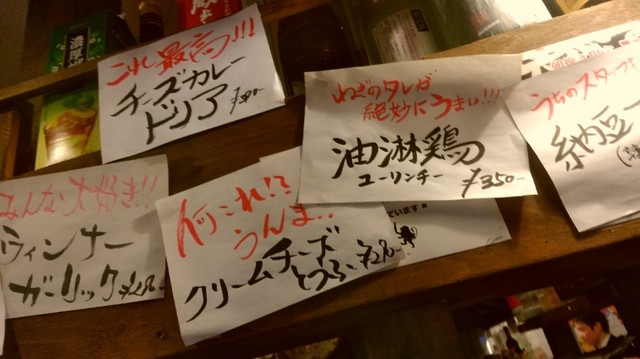 これ最高!!!
チーズカレー
ドリア
ねぎのタレが
絶妙にうまい!!!
油淋鶏
ユーリンチー ¥350-
うちのスタッフ
納豆
みんな大好き!!
ウィンナー
ガーリック
何これ!?
うんま..
クリームチーズ
とうふ
ています。